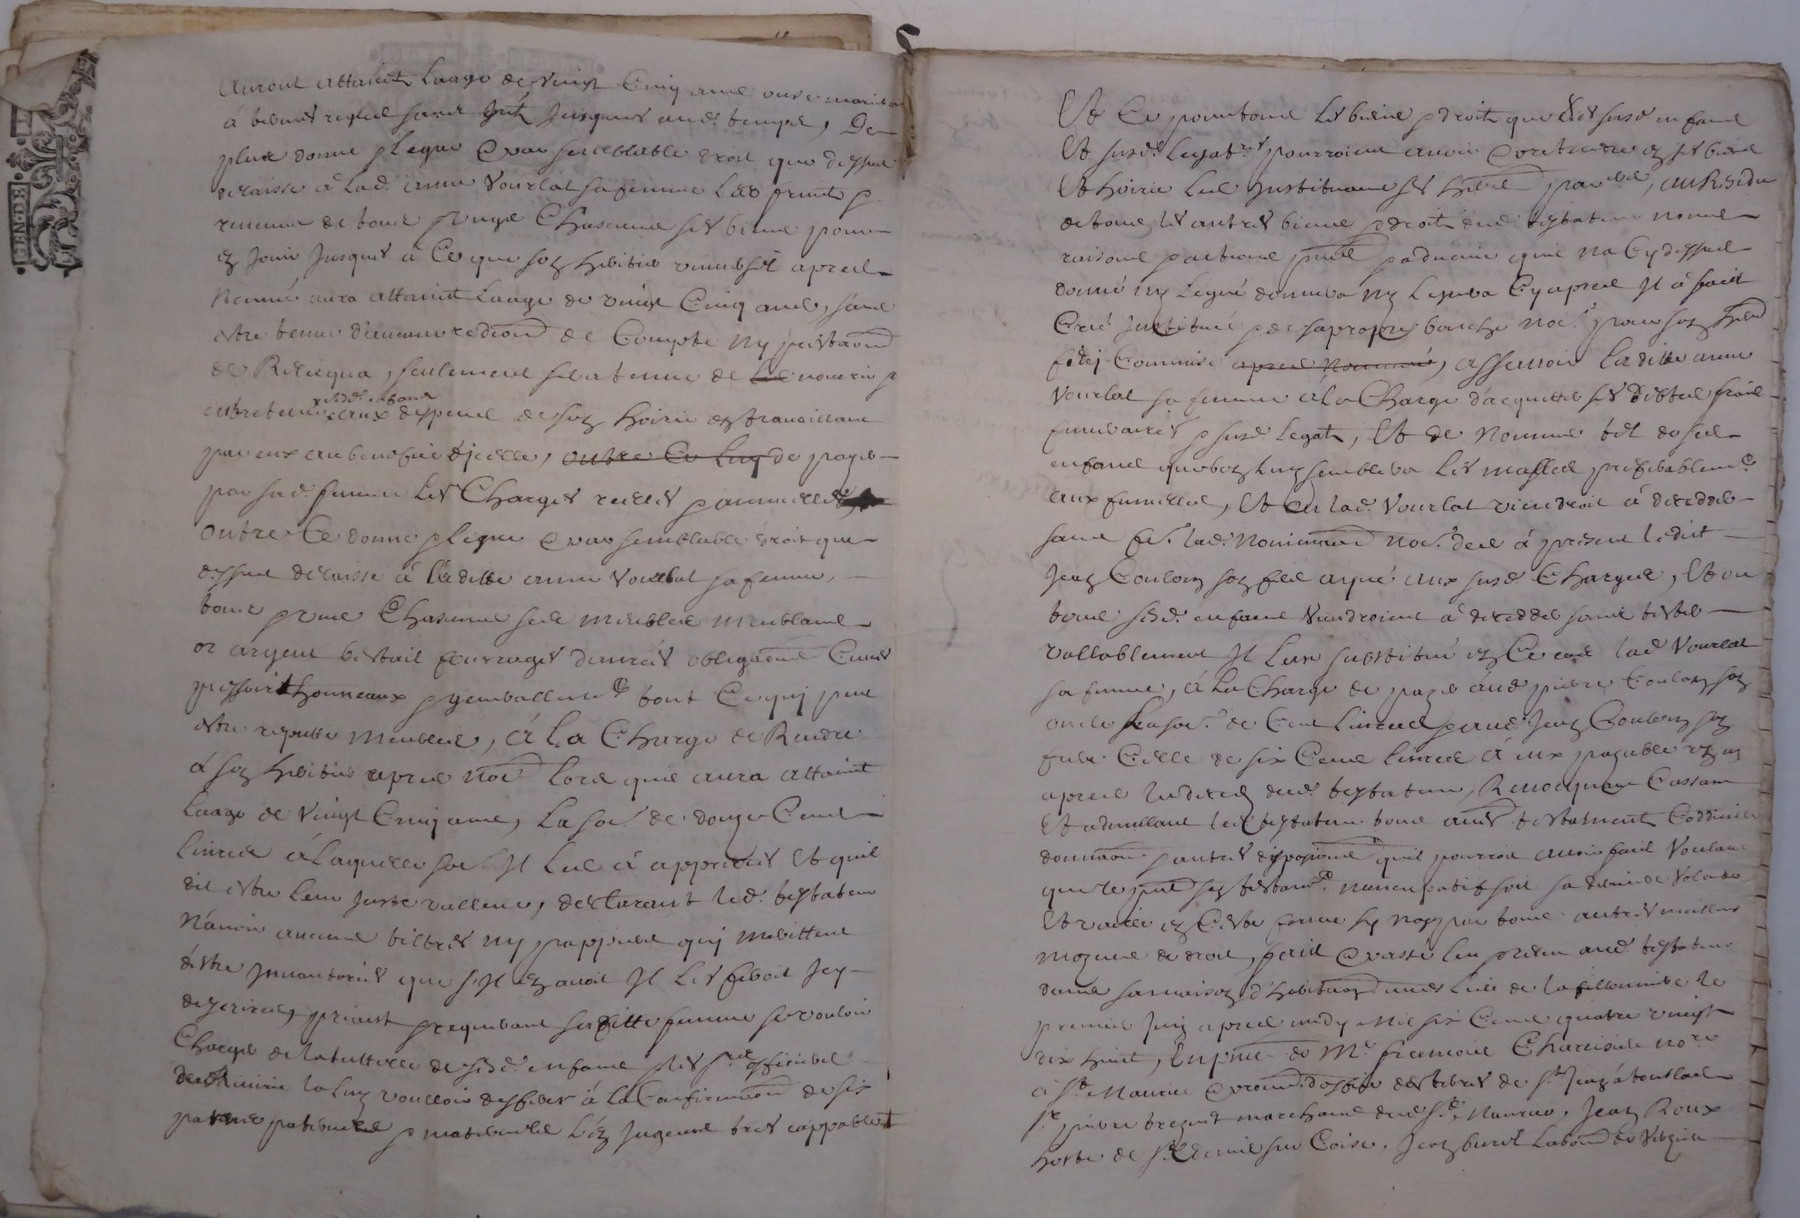 auront attaint laage de vingt cinq ans ou se marient
à termes reglés sans jnt jusques aud. temps, De
plus donne & legue & par semblable droit que dessus
delaisse à lad. anne vourlat sa femme les fruits &
revenus de tous & vngs chascuns ses biens pour
en jouir jusques à ce que son heritier universel apres
nommé aura attaint laage de vingt cinq ans, sans
estre tenue d'aucune reddion de compte ny prestaon
de reliequa, seulement sera tenue de nourrir &
entretenir sesd. enfans aux despens de son hoirie en travaillant
par eux au benefice d'jcelle, outre ce luy de payer
par sad. femme les charges reelles & annuelles
outre ce donne & legue & par semblable droit que
dessus delaisse à laditte anne vourlat sa femme,
tous & vngs chascuns ses meubles meublans
or argent bestail fourrages denrées obligaons cuves
pressoir thonneaux & gnallement tout ce qui peut
estre reputté meubles, à la charge de rendre
à son heritier apres no.é lors quil aura attaint
laage de vingt cinq ans, la so.e de douze cent
livres à laquelle so.e jl les à appretiés et quil
dit estre leur juste valleur, declarant led. testateur
n'avoir aucuns tiltres ny pappiers qui meritent
d'estre jnvantoriés que s'jl en avoit jl les feroit jcy
descrire, priant & requerant saditte femme se vouloir
charger de la tutterie de sesd. enfans & les srs officiers
la luy vouloir defferer à la confirmaon de ses
parens paternels & maternels l'en jugeant tres cappable
Et ce pour tous les biens & droits que lesd. susd. enfans
et susd. legat.res pourroient avoir & pretendre en ses biens
et hoirie les jnstituant ses her.s par.ers, au residu
de tous les autres biens & droits dud. testateur noms
raisons & actions pnts & advenir quil na cy dessus
donné ny legué donnera ny leguera cy apres jl à fait
créé jnstitué & de sa propre bouche no.é pour son her.
fidej commis apres nommé, assavoir laditte anne
vourlat sa femme à la charge d'acquitter ses debtes frais
funeraires & susd. legats, et de nommer tel de ses
enfans que bon luy semblera les masles preferablem.t
aux fumelles, et ou lad. vourlat viendroit à deceder
sans fe. lad. nominaon no.e des à present ledit
jean coulon son fils aisné aux susd. charges, et ou
tous sesd. enfans viendroient à deceder sans tester
vallablement jl leur substitue en ce cas lad. vourlat
sa femme, à la charge de payer aud. pierre coulon son
oncle la so.e de cent livres & aud. jean coulon son
frere celle de six cens livres à eux payable vn an
apres le deces dud. testateur, revocquant cassant
et adnullant led. testateur tous autres testament coddicille
donnaon & autres disposions quil pourroit avoir fait voulant
que le pnt son testam.t nuncupatif soit sa derniere volonté
et vaille en ceste forme sy non par tous autres meilleurs
moyens de droit, fait & passé leu & releu aud. testateur
dans sa maison d'habitaon au lieu de la fillonniere le
premier juin apres midy mil six cens quatre vingt
dix huit, en pnce de M.e francois no.re
à S.t Maurice & d'office des terres de S.t Jean à toulas
s.r pierre marchand dud. S.t Maurice, jean Roux
hoste de S.t denis sur coise, jean burel labour de